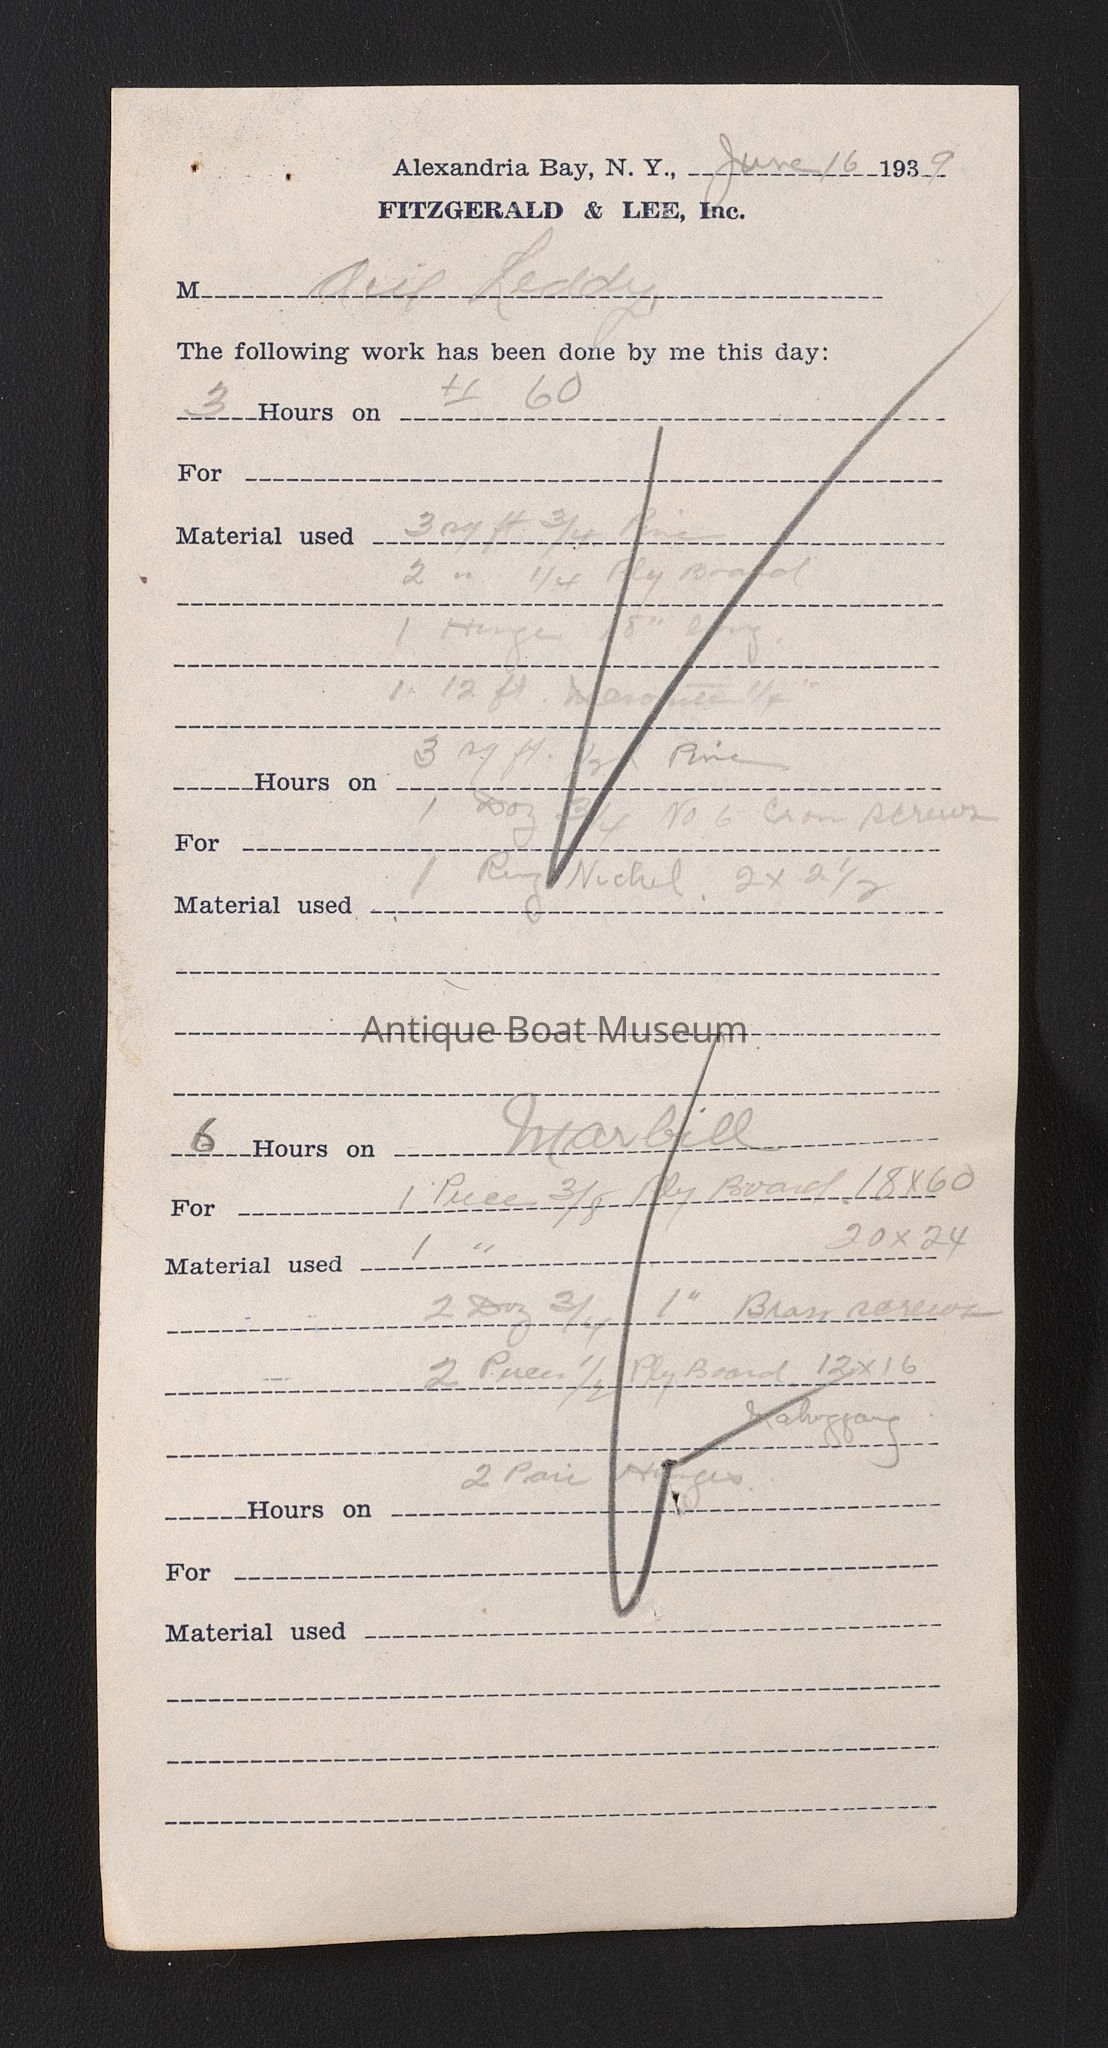 Alexandria Bay, N. Y., June 16 1939
FITZGERALD & LEE, Inc.
M Leddy
The following work has been done by me this day:
3 Hours on # 60
For
Material used 3 sq ft 3/4 Pine
2 " 1/4 Ply Board
1 Hinge 18" long.
1. 12 ft. 1/4"
3 sq ft. 1/2 Pine
Hours on
1 Doz 3/4 No 6 Iron screws
For
1 Ring Nickel. 2 x 2 1/2
Material used
Antique Boat Museum
6 Hours on Marbill
For 1 Piece 3/8 Ply Board 18x60
Material used 1 " 20x24
2 Doz 3/4 1" Brass screws
2 Pieces 1/2 Ply Board 12x16
Mahoggany
2 Pair Hinges.
Hours on
For
Material used